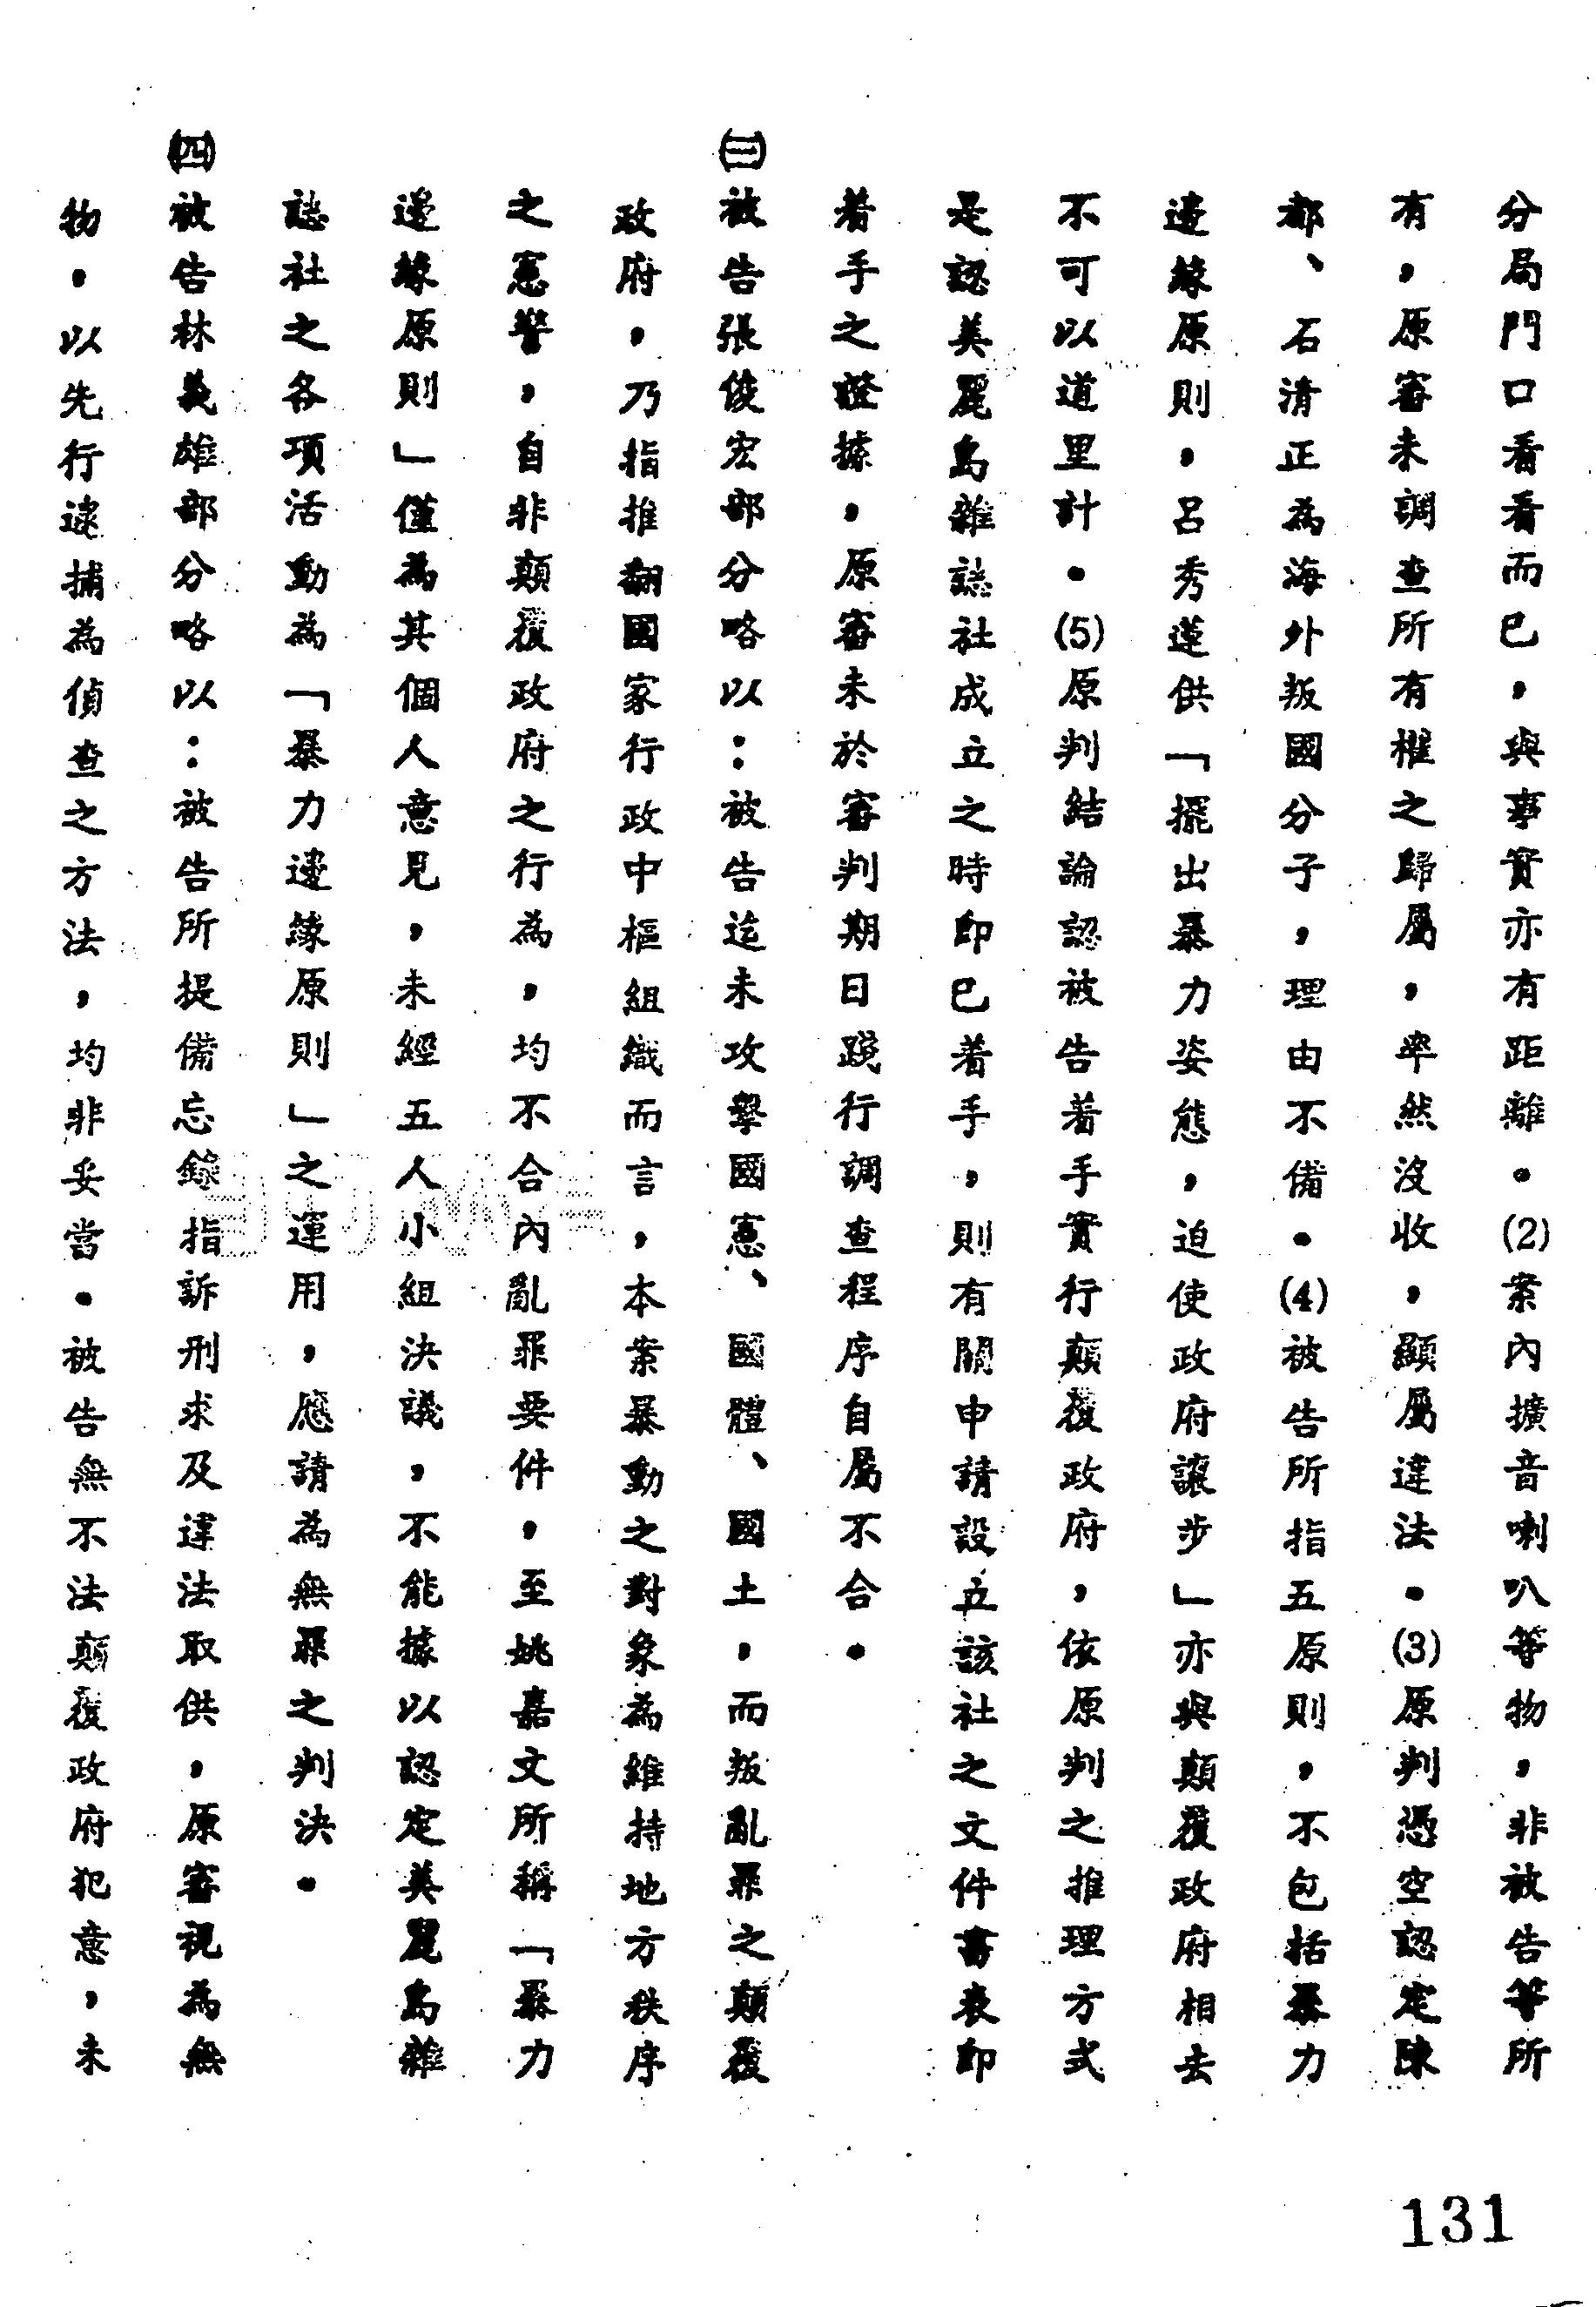 分局門口看看而已，與事實亦有距離。(2)案內擴音喇叭等物，非被告等所
有，原審未調查所有權之歸屬，率然沒收，顯屬違法。(3)原判憑空認定陳
都、石清正為海外叛國分子，理由不備。(4)被告所指五原則，不包括暴力
邊緣原則，呂秀蓮供「擺出暴力姿態，迫使政府讓步」亦與顛覆政府相去
不可以道里計。(5)原判結論認被告着手實行顛覆政府，依原判之推理方式
是認美麗島雜誌社成立之時即已着手，則有關申請設立該社之文件書表即
着手之證據，原審未於審判期日踐行調查程序自屬不合。
㈢被告張俊宏部分略以：被告迄未攻擊國憲、國體、國土，而叛亂罪之顛覆
政府，乃指推翻國家行政中樞組織而言，本案暴動之對象為維持地方秩序
之憲警，自非顛覆政府之行為，均不合內亂罪要件，至姚嘉文所稱「暴力
邊緣原則」僅為其個人意見，未經五人小組決議，不能據以認定美麗島雜
誌社之各項活動為「暴力邊緣原則」之運用，應請為無罪之判決。
㈣被告林義雄部分略以：被告所提備忘錄指訴刑求及違法取供，原審視為無
物，以先行逮捕為偵查之方法，均非妥當。被告無不法顛覆政府犯意，未
131